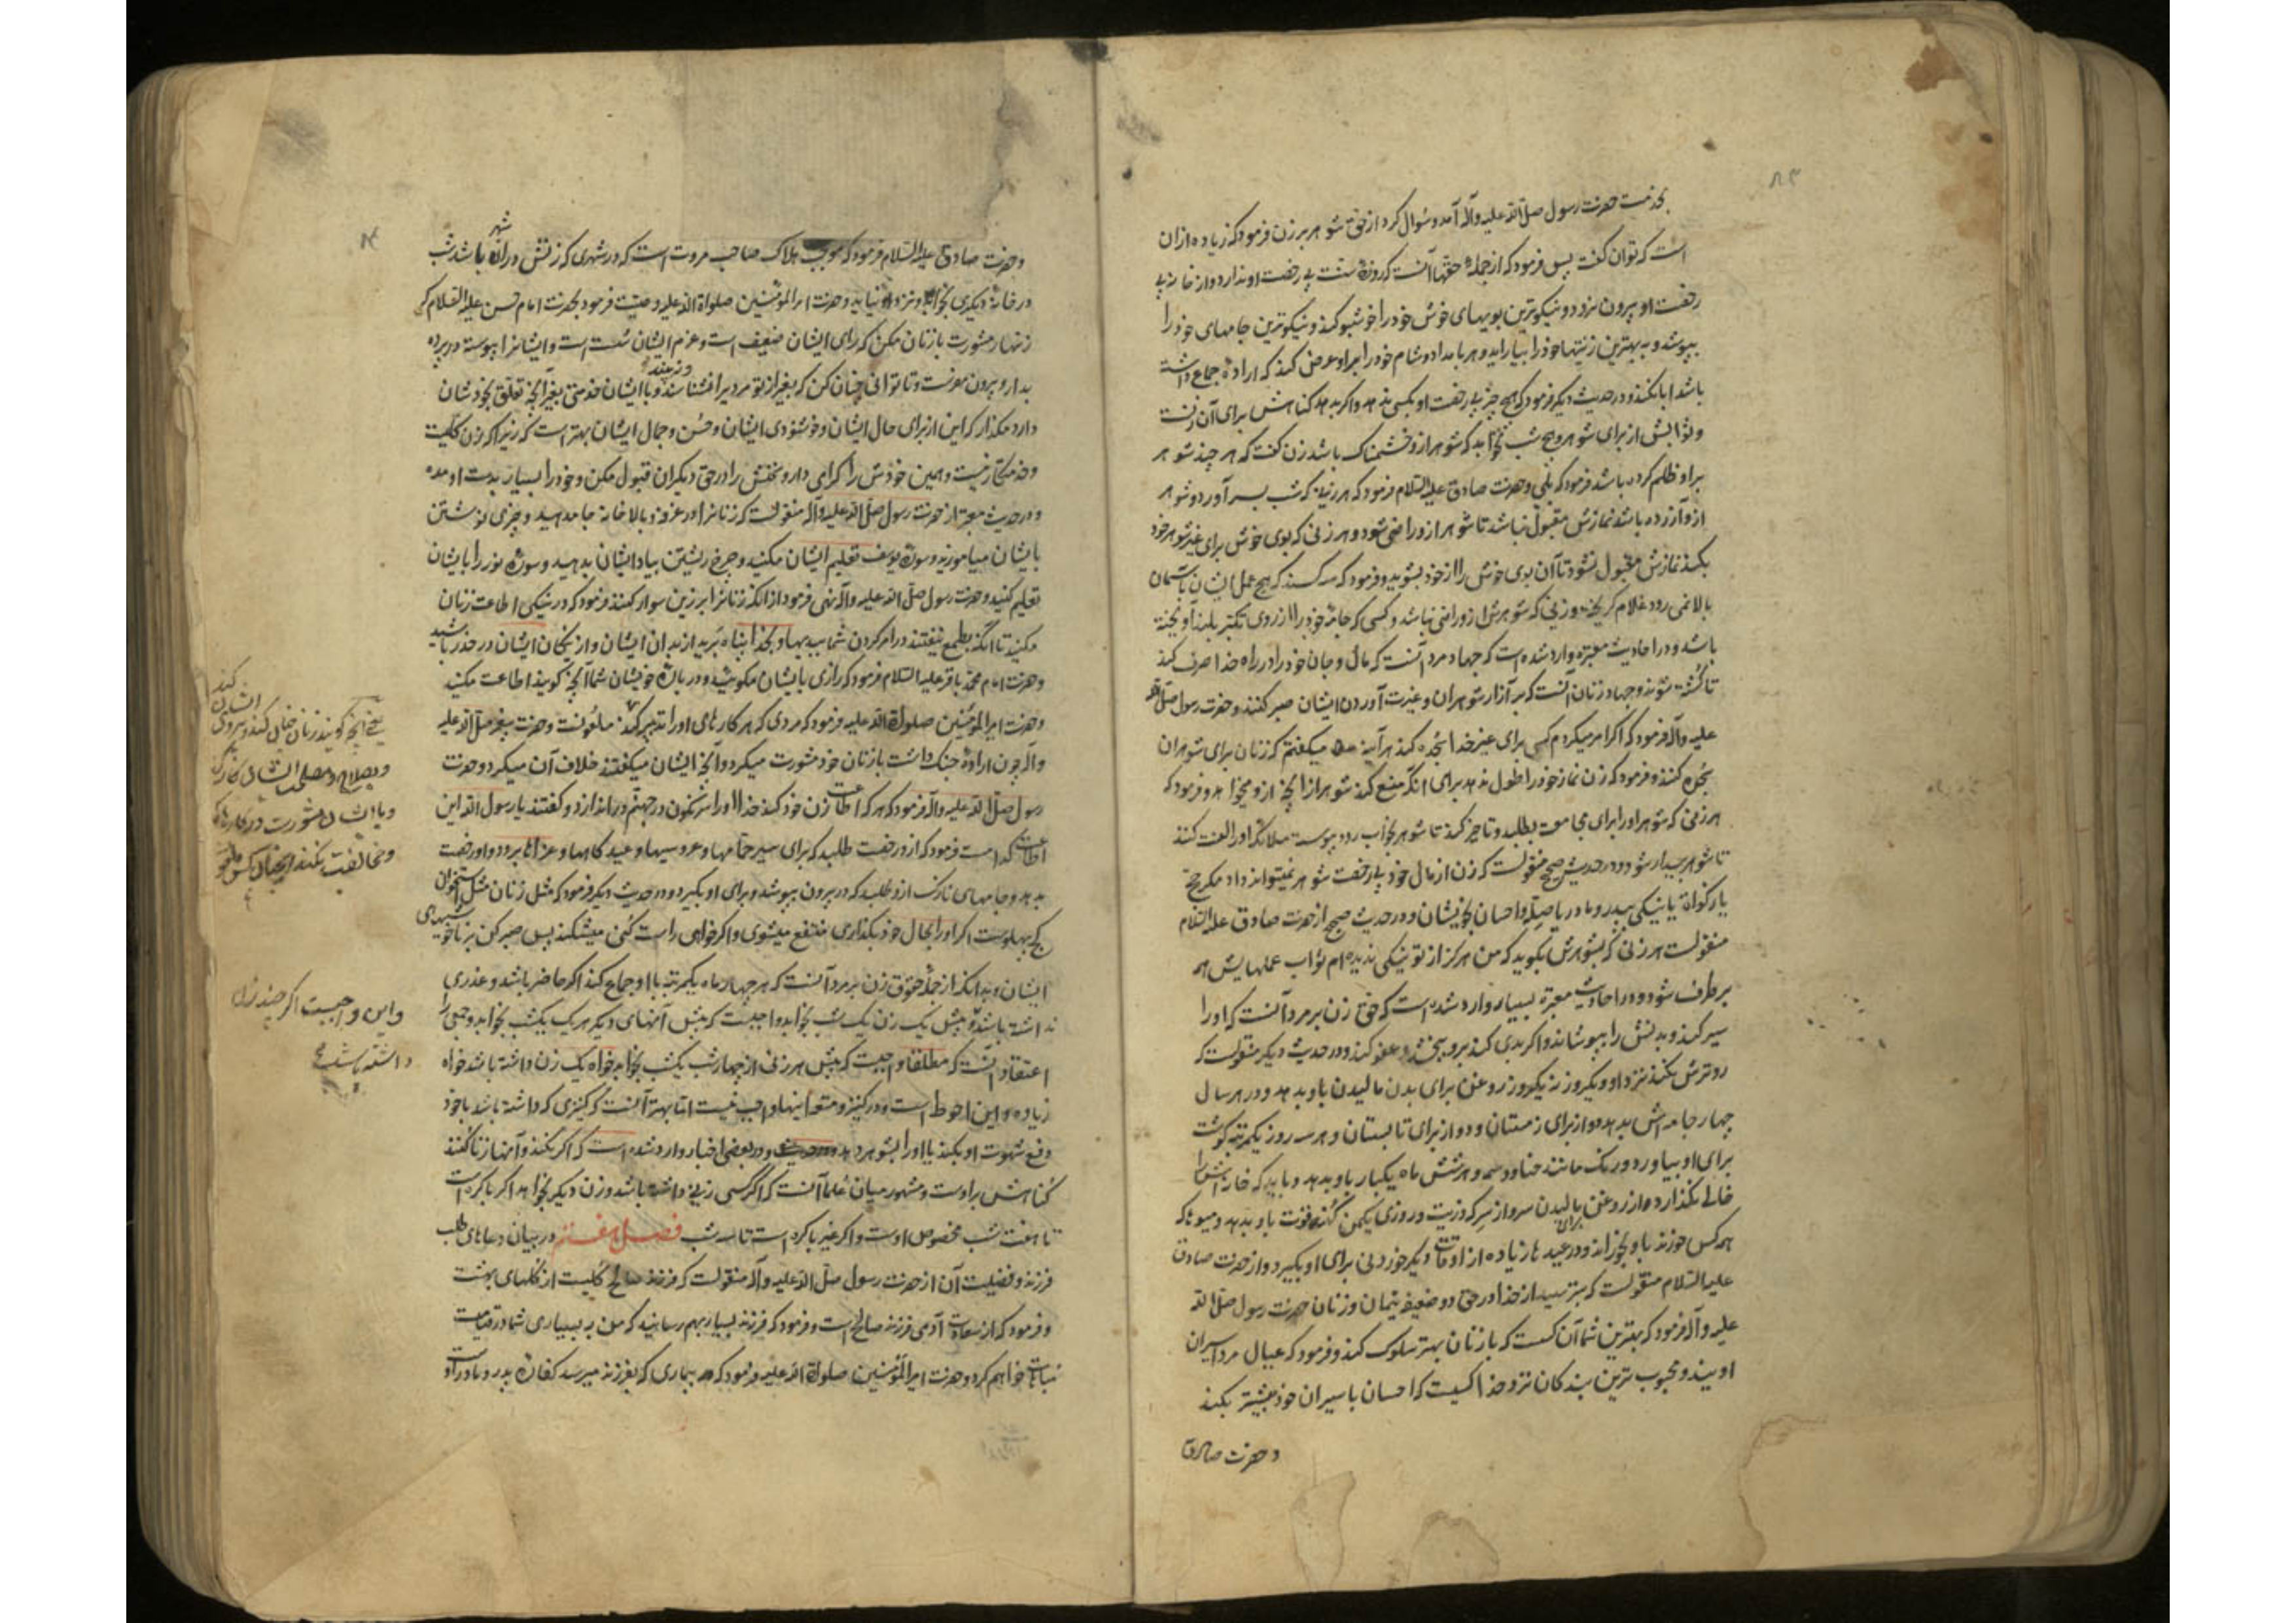 بخدمت حضرت رسول صلی الله علیه وآله آمد وسوال کرد از حق شوهر بر زن فرمود که زیاده ازان
است که توان گفت پس فرمود که از جملهٔ حقها آنست که روزهٔ سنت بی رخصت او ندارد و از خانه بی
رخصت او بیرون نرود و بنیکوترین بویهای خوش خود را خوشبو کند و نیکوترین جامهای خود را
بپوشد و به بهترین زینتها خود را بیاراید و هر بامداد و شام خود را بر او عرض کند که ارادهٔ جماع داشته
باشد ابا نکند و در حدیث دیگر فرمود که هیچ چیز بی رخصت او بکسی ندهد و اگر بدهد کناهش برای آن زنست
و ثوابش از برای شوهر و هیچ شب نخوابد که شوهر ازو خشمناک باشد زن گفت که هر چند شوهر
بر او ظلم کرده باشد فرمود که بلی و حضرت صادق علیه السلام فرمود که هر زنی که شب بسر آورد و شوهر
ازو آزرده باشد نمازش مقبول نباشد تا شوهر ازو راضی شود و هر زنی که بوی خوش برای غیر شوهر خود
بکند نمازش مقبول نشود تا آن بوی خوش را از خود بشوید و فرمود که سه کسند که هیچ عمل ایشان باسمان
بالا نمی رود غلام کریخته و زنی که شوهرش ازو راضی نباشد و کسی که جامهٔ خود را از روی تکبر بلند آویخته
باشد و در احادیث معتبره وارد شده است که جهاد مرد آنست که مال و جان خود را در راه خدا صرف کند
تا کشته شود و جهاد زنان آنست که بر آزار شوهران و غیرت آوردن ایشان صبر کنند و حضرت رسول صلی الله
علیه وآله فرمود که اگر امر میکردم کسی برای غیر خدا سجده کند هرآینه میگفتم که زنان برای شوهران
سجده کنند و فرمود که زن نماز خود را طول ندهد برای آنکه منع کند شوهر از آنچه ازو میخواهد و فرمود که
هر زنی که شوهر او را برای مجامعت بطلبد و تاخیر کند تا شوهر بخواب رود پیوسته ملائکه او را لعنت کنند
تا شوهر بیدار شود و در حدیث صحیح منقولست که زن از مال خود بی رخصت شوهر نمیتواند داد مکر حج
یا زکوة یا نیکی بپدر و مادر یا صله و احسان بخویشان و در حدیث صحیح از حضرت صادق علیه السلام
منقولست هر زنی که بشوهرش بگوید که من هرگز از تو نیکی ندیده ام ثواب عملهایش همه
برطرف شود و در احادیث معتبره بسیار وارد شده است که حق زن بر مرد آنست که او را
سیر کند و بدنش را بپوشاند و اگر بدی کند برو ببخشد و عفو کند و در حدیث دیگر منقولست که
رو ترش نکند نزد او و یکروز نه یکروز روغن برای بدن مالیدن باو بدهد و در هر سال
چهار جامه اش بدهد دو از برای زمستان و دو از برای تابستان و هر سه روز یکمرتبه گوشت
برای او بیاورد و رنک مانند حنا و وسمه و هر شش ماه یکبار باو بدهد و باید که خانه اش را
خالی نکذارد و از روغن برای مالیدن سر و از سرکه و زیت و روزی یکمن کندم قوت باو بدهد و میوها که
همه کس خورند باو بخوراند و در عیدها زیاده از اوقات دیگر خوردنی برای او بگیرد و از حضرت صادق
علیه السلام منقولست که بترسید از خدا در حق دو ضعیف یتیمان و زنان حضرت رسول صلی الله
علیه وآله فرمود که بهترین شما آن کسست که با زنان بهتر سلوک کند و فرمود که عیال مرد اسیران
اویند و محبوب ترین بندکان نزد خدا کسیست که احسان باسیران خود بیشتر بکند
و حضرت صادق
وحضرت صادق علیه السلام فرمود که موجب هلاک صاحب مروت است که در شهری که زنش در آن شهر باشد شب
در خانهٔ دیگری بخوابد و نزد او نیاید و حضرت امیرالمؤمنین صلوات الله علیه وصیت فرمود بحضرت امام حسن علیه السلام که
زنهار مشورت با زنان مکن که رای ایشان ضعیف است و عزم ایشان سست است و ایشانرا پیوسته در پرده
بدار و بیرون مفرست و تا توانی چنان کن که بغیر از تو مردیرا نشناسند و نه بینند و با ایشان خدمتی بغیر آنچه تعلق بخودشان
دارد مکذار که این از برای حال ایشان و خوشنودی ایشان و حسن و جمال ایشان بهتر است زیرا که زن کلیست
و خدمتکار نیست و همین خودش را گرامی دار و سخنش را در حق دیگران قبول مکن و خود را بسیار بدست او مده
و در حدیث معتبر از حضرت رسول صلی الله علیه وآله منقولست که زنانرا در غرفه و بالا خانه جا مدهید و چیزی نوشتن
بایشان میاموزید و سورهٔ یوسف تعلیم ایشان مکنید و چرخ ریشتن بیاد ایشان بدهید و سورهٔ نور را بایشان
تعلیم کنید و حضرت رسول صلی الله علیه وآله نهی فرمود از آنکه زنانرا بر زین سوار کنند و فرمود که در نیکی اطاعت زنان
مکنید تا آنکه بطمع نیفتند در امر کردن شما ببدیها و بخدا پناه برید از بدان ایشان و از نیکان ایشان در حذر باشید
و حضرت امام محمد باقر علیه السلام فرمود که رازی بایشان مکوئید و در بارهٔ خویشان شما آنچه گویند اطاعت مکنید
وحضرت امیرالمؤمنین صلوات الله علیه فرمود که مردی که هر کارهای او را تدبیر کند ملعونست و حضرت پیغمبر صلی الله علیه
وآله چون ارادهٔ جنک داشت با زنان خود مشورت میکرد و آنچه ایشان میگفتند خلاف آن میکرد و حضرت
رسول صلی الله علیه وآله فرمود که هر که اطاعت زن خود کند خدا او را سرنکون در جهنم در اندازد و گفتند یا رسول الله این
اطاعت کدامست فرمود که ازو رخصت طلبد که برای سیر حمامها و عروسیها و عیدکاهها و عزاها برود و او رخصت
بدهد و جامهای نازک ازو طلبد که در بیرون بپوشد و برای او بگیرد و در حدیث دیگر فرمود که مثل زنان مثل استخوان
کج پهلوست اگر او را بحال خود بکذاری منتفع میشوی و اگر خواهی راست کنی میشکند پس صبر کن بر ناخوشیهای
ایشان بدانکه از جمله حقوق زن بر مرد آنست که هر چهار ماه یکمرتبه با او جماع کند اگر حاضر باشد و عذری
نداشته باشد و پیش یک زن یک شب بخوابد واجبست که پیش آنهای دیگر هر یک یکشب بخوابد و جمعی را
اعتقاد آنست که مطلقا واجبست که پیش هر زنی از چهار شب یکشب بخوابد خواه یک زن داشته باشد خواه
زیاده و این احوط است و در کنیز و متعه اینها واجب نیست اما بهتر آنست که کنیزی که داشته باشد یا خود
دفع شهوت او بکند یا او را بشوهر دهد و در بعضی اخبار وارد شده است که اگر نکند و آنها زنا کنند
کناهش بر اوست و مشهور میان علما آنست که اگر کسی زنی داشته باشد و زن دیگر بخواهد اگر باکره است
تا هفت شب مخصوص اوست و اگر غیر باکره است تا سه شب فصل هفتم در بیان دعاهای طلب
فرزند و فضیلت آن از حضرت رسول صلی الله علیه وآله منقولست که فرزند صالح کلیست از کلهای بهشت
و فرمود که از سعادت آدمی فرزند صالح است و فرمود که فرزند بسیار بهم رسانید که من به بسیاری شما در قیامت
مباهات خواهم کرد و حضرت امیرالمؤمنین صلوات الله علیه فرمود که بیماری که بفرزند میرسد کفارهٔ پدر و مادر او
یعنی آنچه گویند زنان
و با ایشان مشورت در کارها
و مخالفت بکنند
و این واجبست اگر چند زن
داشته باشد